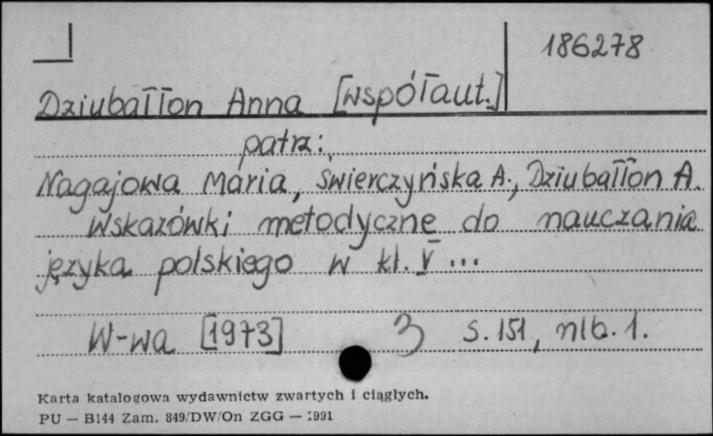 186278
Dziubałłon Anna [współaut.]
patrz:
Nagajowa Maria, Świerczyńska A., Dziubałłon A.
Wskazówki metodyczne do nauczania
języka polskiego w kl. V ...
W-wa [1973] 3 s. 151, nlb. 1.
Karta katalogowa wydawnictw zwartych i ciągłych.
PU — B144 Zam. 849/DW/On ZGG — 1991